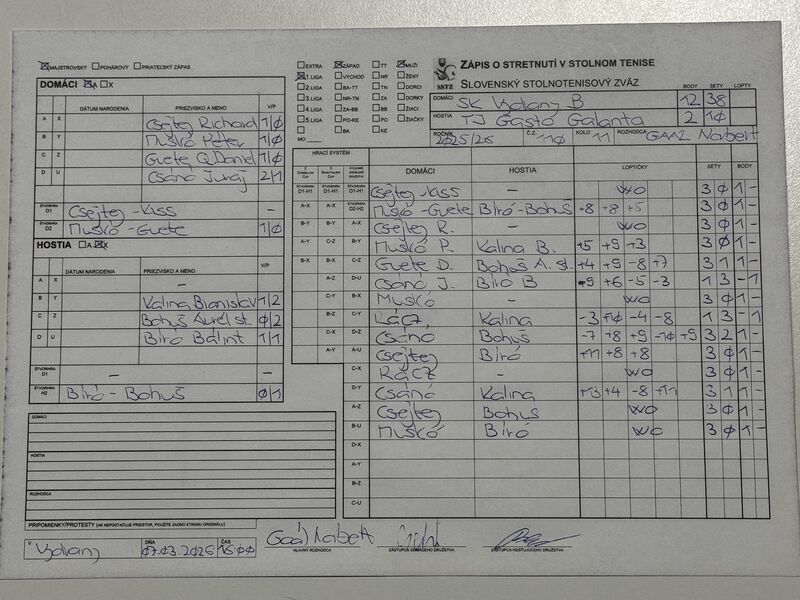 MAJSTROVSKÝ POHÁROVÝ PRIATEĽSKÝ ZÁPAS
DOMÁCI A X
DÁTUM NARODENIA PRIEZVISKO A MENO V/P
A X Csejtey Richard 1/0
B Y Muskó Peter 1/0
C Z Guete Q. Daniel 1/0
D U Csánó Juraj 2/1
ŠTVORHRA D1 Csejtey - Kiss -
ŠTVORHRA D2 Muskó - Guete 1/0
HOSTIA A X
DÁTUM NARODENIA PRIEZVISKO A MENO V/P
A X -
B Y Kalina Branislav 1/2
C Z Bohuš Aurel st. 0/2
D U Bíró Bálint 1/1
ŠTVORHRA D1 - -
ŠTVORHRA H2 Bíró - Bohuš 0/1
DOMÁCI
HOSTIA
ROZHODCA
PRIPOMIENKY/PROTESTY (AK NEPOSTAČUJE PRIESTOR, POUŽITE ZADNÚ STRANU ORIGINÁLU)
V DŇA 07.03.2026 ČAS 16:00
EXTRA ZÁPAD TT MUŽI
1.LIGA VÝCHOD NR ŽENY
2.LIGA BA-TT TN DORCI
3.LIGA NR-TN ZA DORKY
4.LIGA ZA-BB BB ŽIACI
5.LIGA KE-PO PO ŽIAČKY
BA KE
MO
SSTZ
ZÁPIS O STRETNUTÍ V STOLNOM TENISE
SLOVENSKÝ STOLNOTENISOVÝ ZVÄZ
BODY SETY LOPTY
DOMÁCI B 12 38
HOSTIA TJ Gasto Galanta 2 10
ROČNÍK 2025/26 Č.Z. 10 KOLO 11 ROZHODCA GAÁL Norbert
HRACÍ SYSTÉM
DOMÁCI HOSTIA LOPTIČKY SETY BODY
ŠTVORHRA D1-H1 ŠTVORHRA D1-H1 ŠTVORHRA D1-H1 Csejtey - Kiss - WO 3 0 1 -
A-X A-X ŠTVORHRA D2-H2 Muskó - Guete Bíró - Bohuš +8 +8 +5 3 0 1 -
B-Y B-Y A-X Csejtey R. - WO 3 0 1 -
A-Y C-Z B-Y Muskó P. Kalina B. +5 +9 +3 3 0 1 -
B-X B-X C-Z Guete D. Bohuš A. st. +4 +9 -8 +7 3 1 1 -
A-Z D-U Csánó J. Bíró B -9 +6 -5 -3 1 3 - 1
C-Y B-X Muskó - WO 3 0 1 -
B-Z C-Y Rácz Kalina -3 +10 -4 -8 1 3 - 1
C-X D-Z Csánó Bohuš -7 +8 +9 -10 +9 3 2 1 -
A-Y A-U Csejtey Bíró +11 +8 +8 3 0 1 -
C-X Rácz - WO 3 0 1 -
D-Y Csánó Kalina +13 +4 -8 +11 3 1 1 -
A-Z Csejtey Bohuš WO 3 0 1 -
B-U Muskó Bíró WO 3 0 1 -
D-X
A-Y
B-Z
C-U
Gaál Norbert
HLAVNÝ ROZHODCA ZÁSTUPCA DOMÁCEHO DRUŽSTVA ZÁSTUPCA HOSŤUJÚCEHO DRUŽSTVA